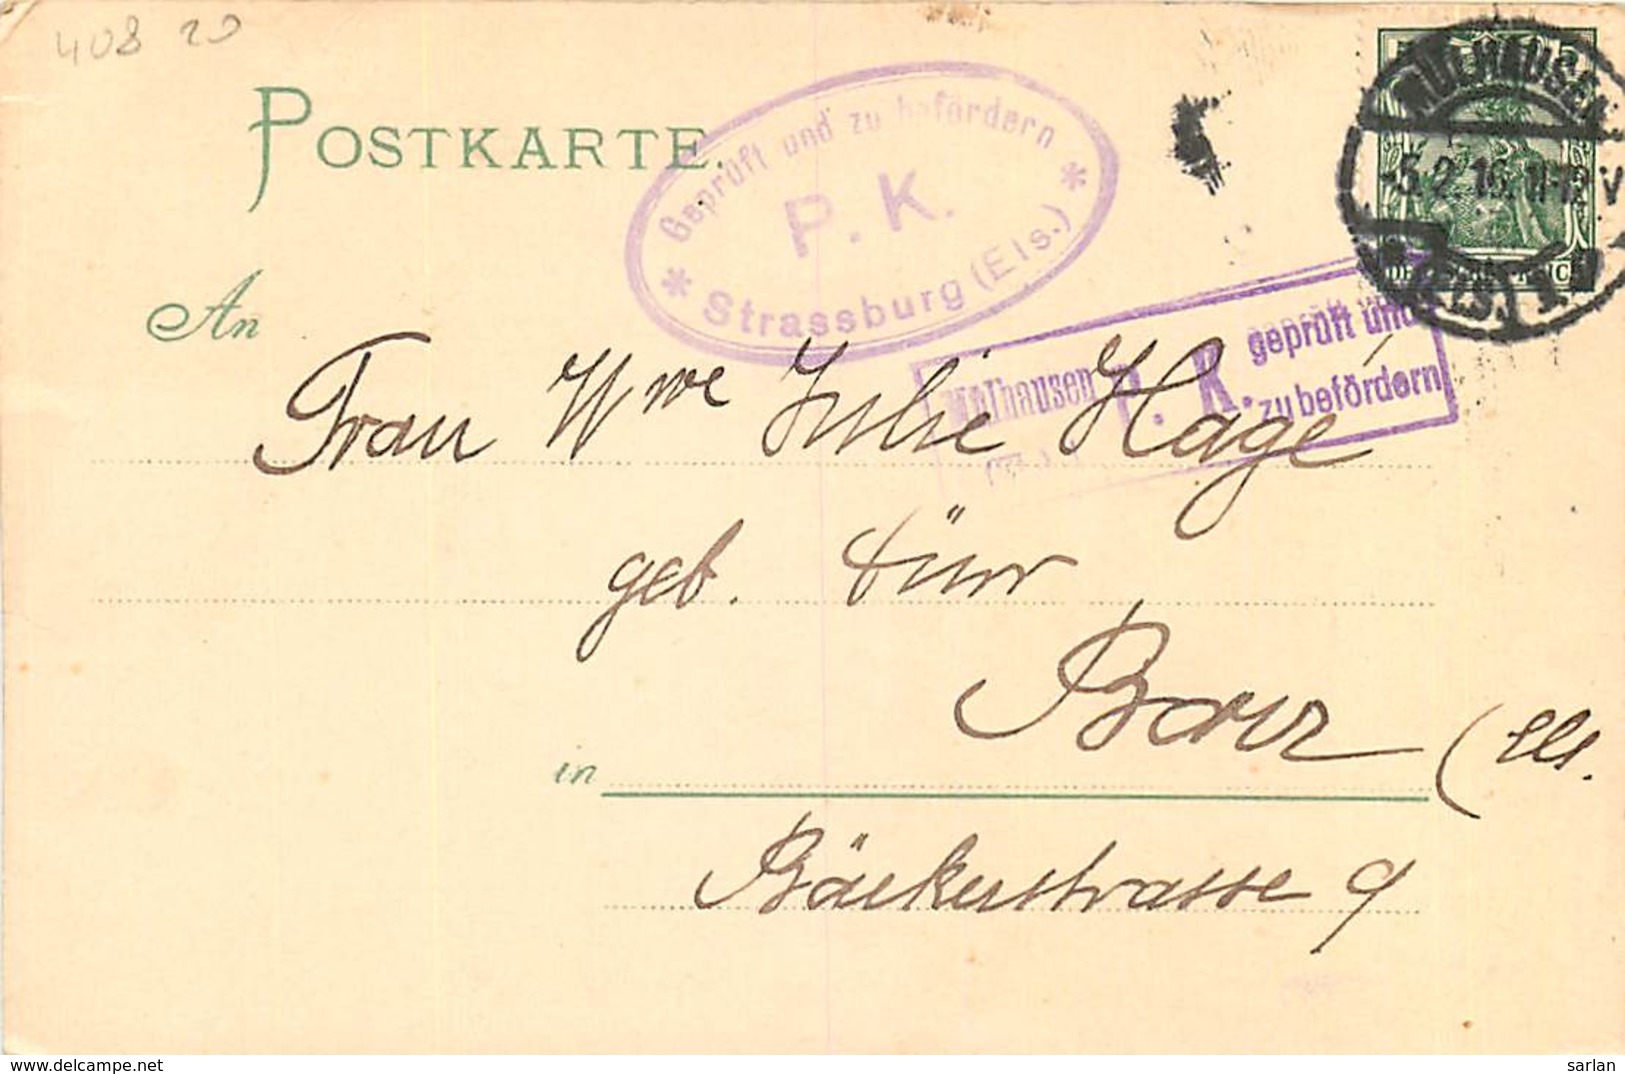 408 20
POSTKARTE.
Geprüft und zu befördern
P. K.
* Strassburg (Els.) *
MÜLHAUSEN
-5.2.16.11-12 V
* (ELS.) 1 *
An
Mülhausen P. K. geprüft und
zu befördern
Frau Wwe Julie Hagé
geb. Dürr
in Barr (Els.
Bäckerstrasse 9
sarlan